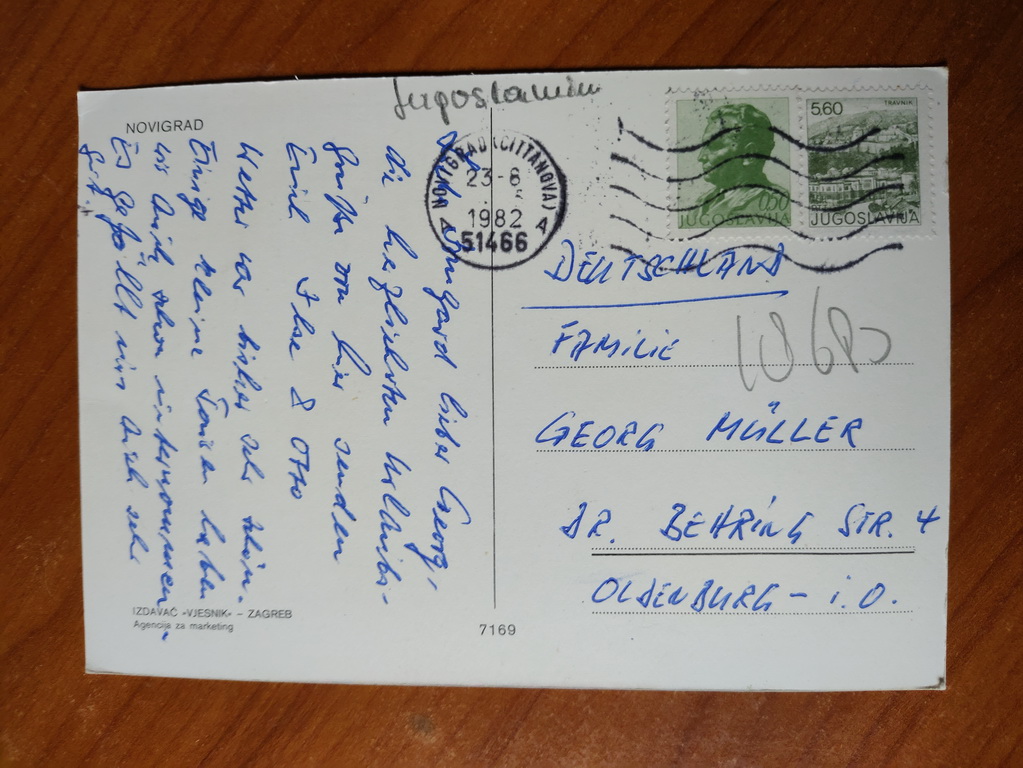 Jugoslawien
NOVIGRAD
Irmgard lieber Georg,
die herzlichsten Urlaubs-
grüße von hier senden
Emil Ilse & Otto
Wetter war bisher sehr schön.
Einige kleine Touren haben
wir auch schon unternommen
Es gefällt uns auch sehr
gut.
IZDAVAČ «VJESNIK» – ZAGREB
Agencija za marketing
7169
NOVIGRAD (CITTANOVA)
23-8
1982
A A
51466
0,50
JUGOSLAVIJA
5.60
TRAVNIK
JUGOSLAVIJA
DEUTSCHLAND
FAMILIE
GEORG MÜLLER
DR. BEHRING STR. 4
OLDENBURG – i. O.